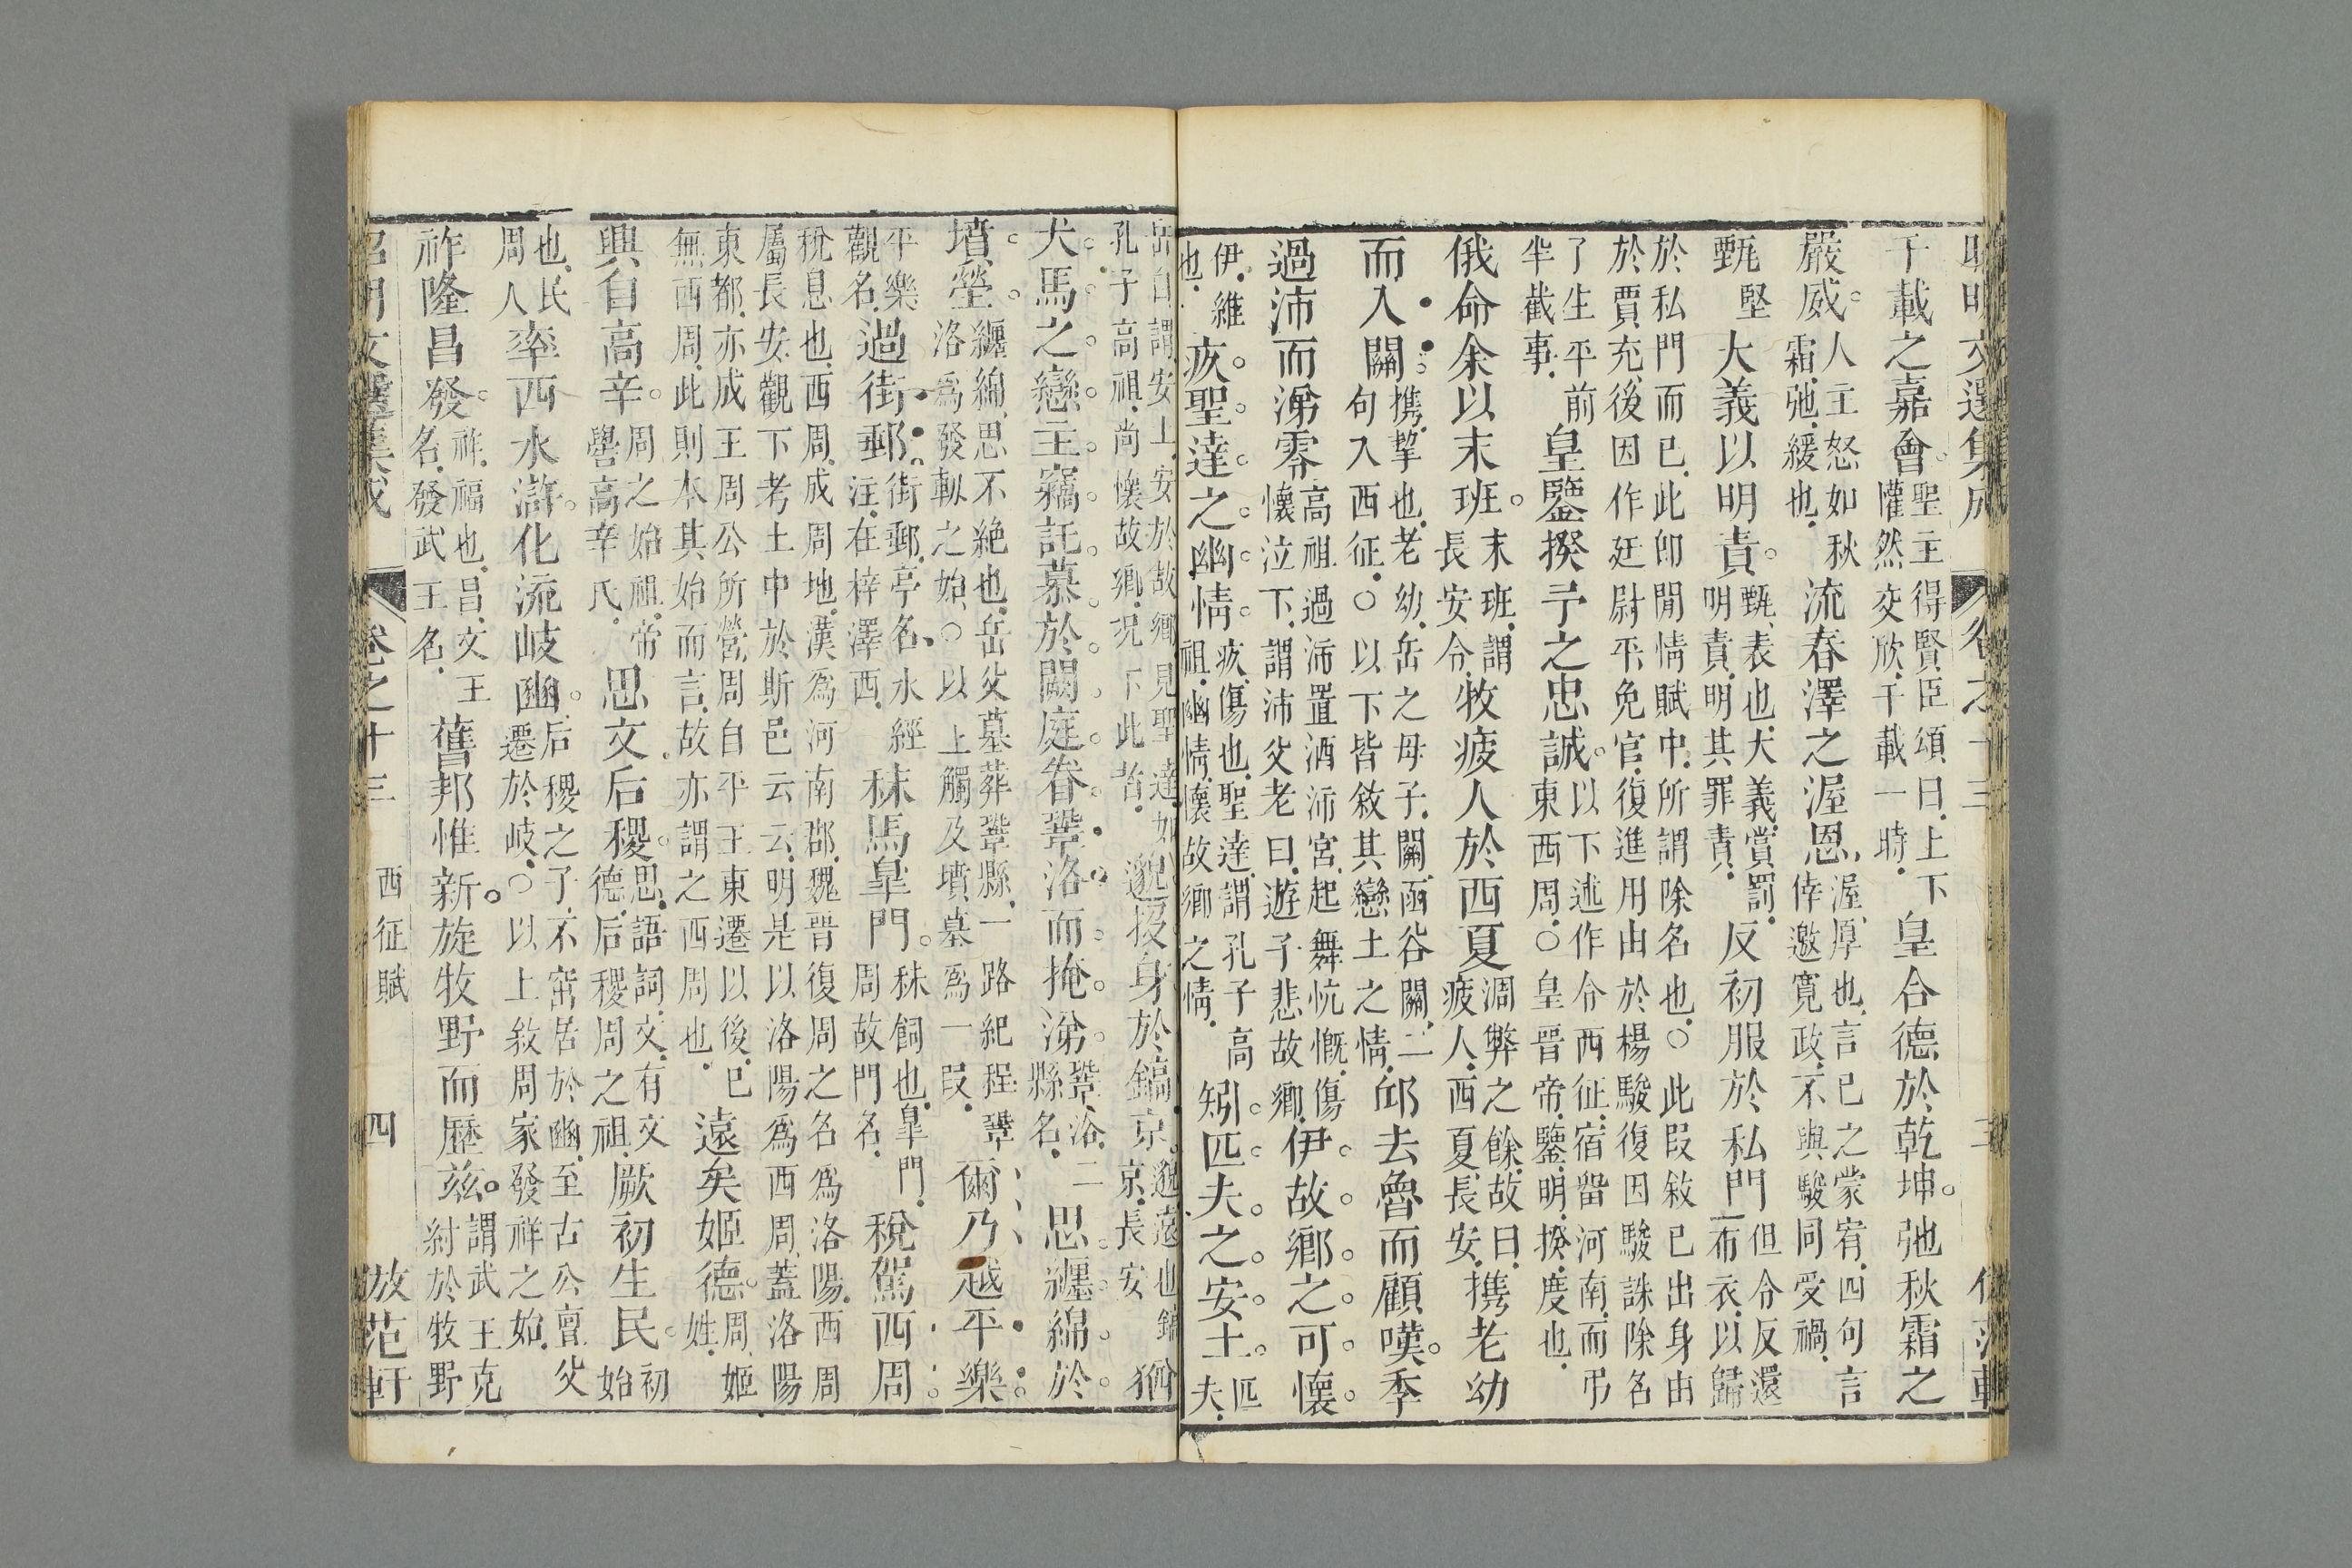 昭明文選集成 卷之十三 三
千載之嘉會。聖主得賢臣頌曰.上下懽然交欣.千載一時.皇合德於乾坤。弛秋霜之
嚴威。人主怒如秋霜.弛.緩也.流春澤之渥恩.渥.厚也.言已之蒙宥.四句言倖邀寬政.不與駿同受禍.
甄堅大義以明責。甄.表也.大義.賞罰.明責.明其罪責.反初服於私門但令反還布衣.以歸
於私門而已.此卽閒情賦中.所謂除名也.○此叚敘已出身由於賈充.後因作廷尉平.免官.復進用由於楊駿復因駿誅除名
了生平前半截事.皇鑒揆予之忠誠。以下述作令西征.宿留河南.而弔東西周.○皇晉帝.鑒.明.揆.度也.
俄命余以末班。末班.謂長安令.牧疲人於西夏凋弊之餘.故曰.疲人.西夏.長安.携老幼
而入關。携.挈也.老幼.岳之母子.關.函谷關.二句入西征.○以下皆敘其戀土之情.邱去魯而顧嘆。季
過沛而涕零高祖過沛置酒沛宮.起舞忼慨.傷懷泣下.謂沛父老曰.遊子悲故鄉.伊故鄉之可懷。
伊.維也.疚聖達之幽情。疚.傷也.聖達.謂孔子高祖.幽情.懷故鄉之情.矧匹夫之安土。匹夫.
岳自謂.安土.安於故鄉見聖達.如孔子高祖.尚懷故鄉.況下此者.邈投身於鎬京。邈.遠也鎬京.長安猶
犬馬之戀主。竊託慕於闕庭。眷鞏洛而掩涕。鞏.洛.二縣名.思纏綿於
墳塋。纏綿.思不絶也.岳父墓葬鞏縣.一路紀程鞏洛爲發軔之始.○以上觸及墳墓爲一叚.爾乃越平樂。
平樂觀名.過街郵。街郵.亭名.水經注.在梓澤西.秣馬皐門。秣.飼也.皐門.周故門名.稅駕西周。
稅息也.西周.成周地.漢爲河南郡.魏晉復周之名爲洛陽.西周屬長安.觀下考土中於斯邑云云.明是以洛陽爲西周.蓋洛陽
東都.亦成王周公所營.周自平王東遷以後.已無西周.此則本其始而言.故亦謂之西周也.遠矣姬德。周.姬姓.
興自高辛。周之始祖.帝嚳高辛氏.思文后稷。思.語詞.文.有文德.后稷周之祖.厥初生民。初始
也.民周人率西水滸。化流岐豳。后稷之子.不窋居於豳.至古公亶父遷於岐.○以上敘周家發祥之始.
祚隆昌發。祚.福也.昌.文王名.發.武王名.舊邦惟新。旋牧野而歷茲。謂武王克紂於牧野
昭明文選集成 卷之十三 西征賦 四 放范軒